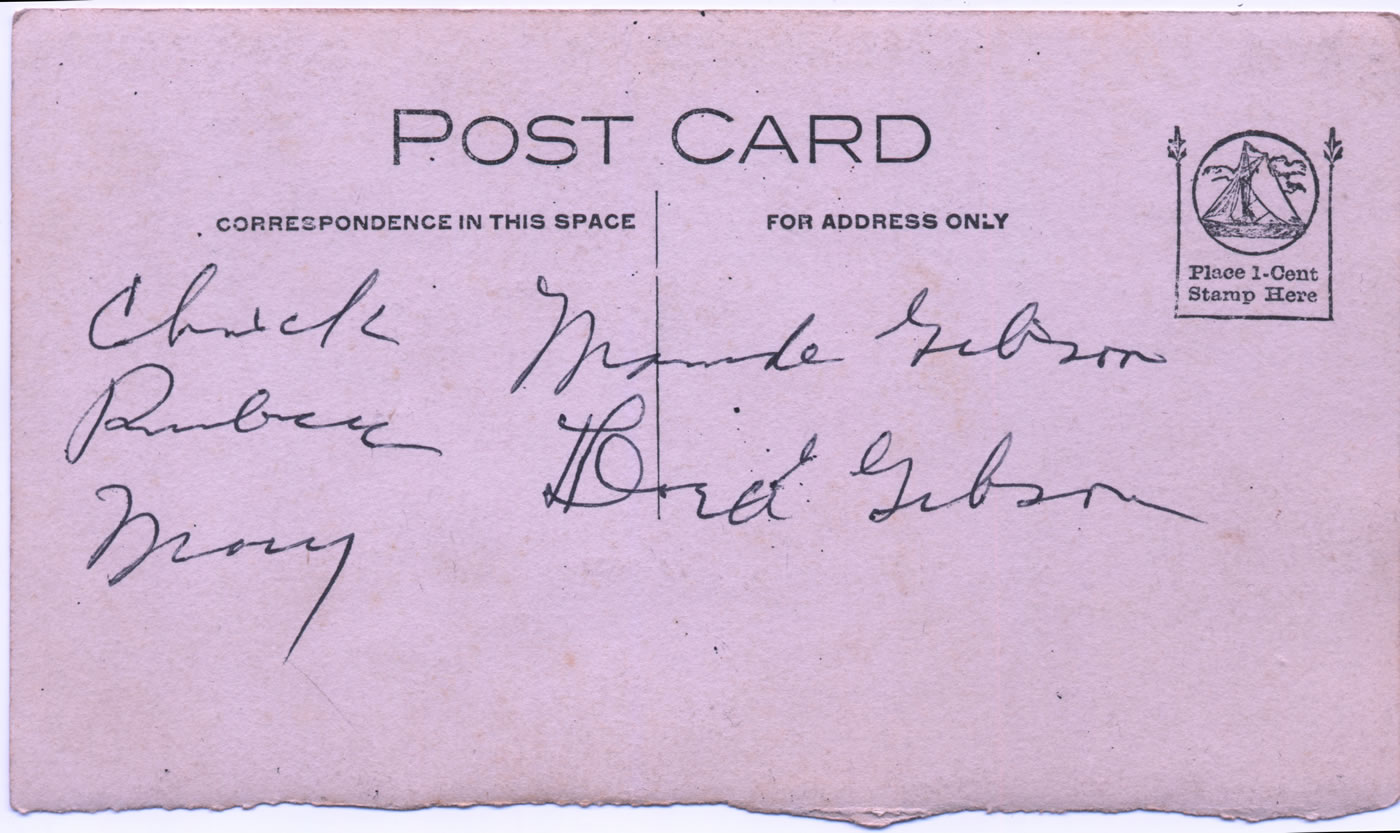 POST CARD
CORRESPONDENCE IN THIS SPACE
FOR ADDRESS ONLY
Place 1-Cent
Stamp Here
Chick
Mary
Maude Gibson
Gibson